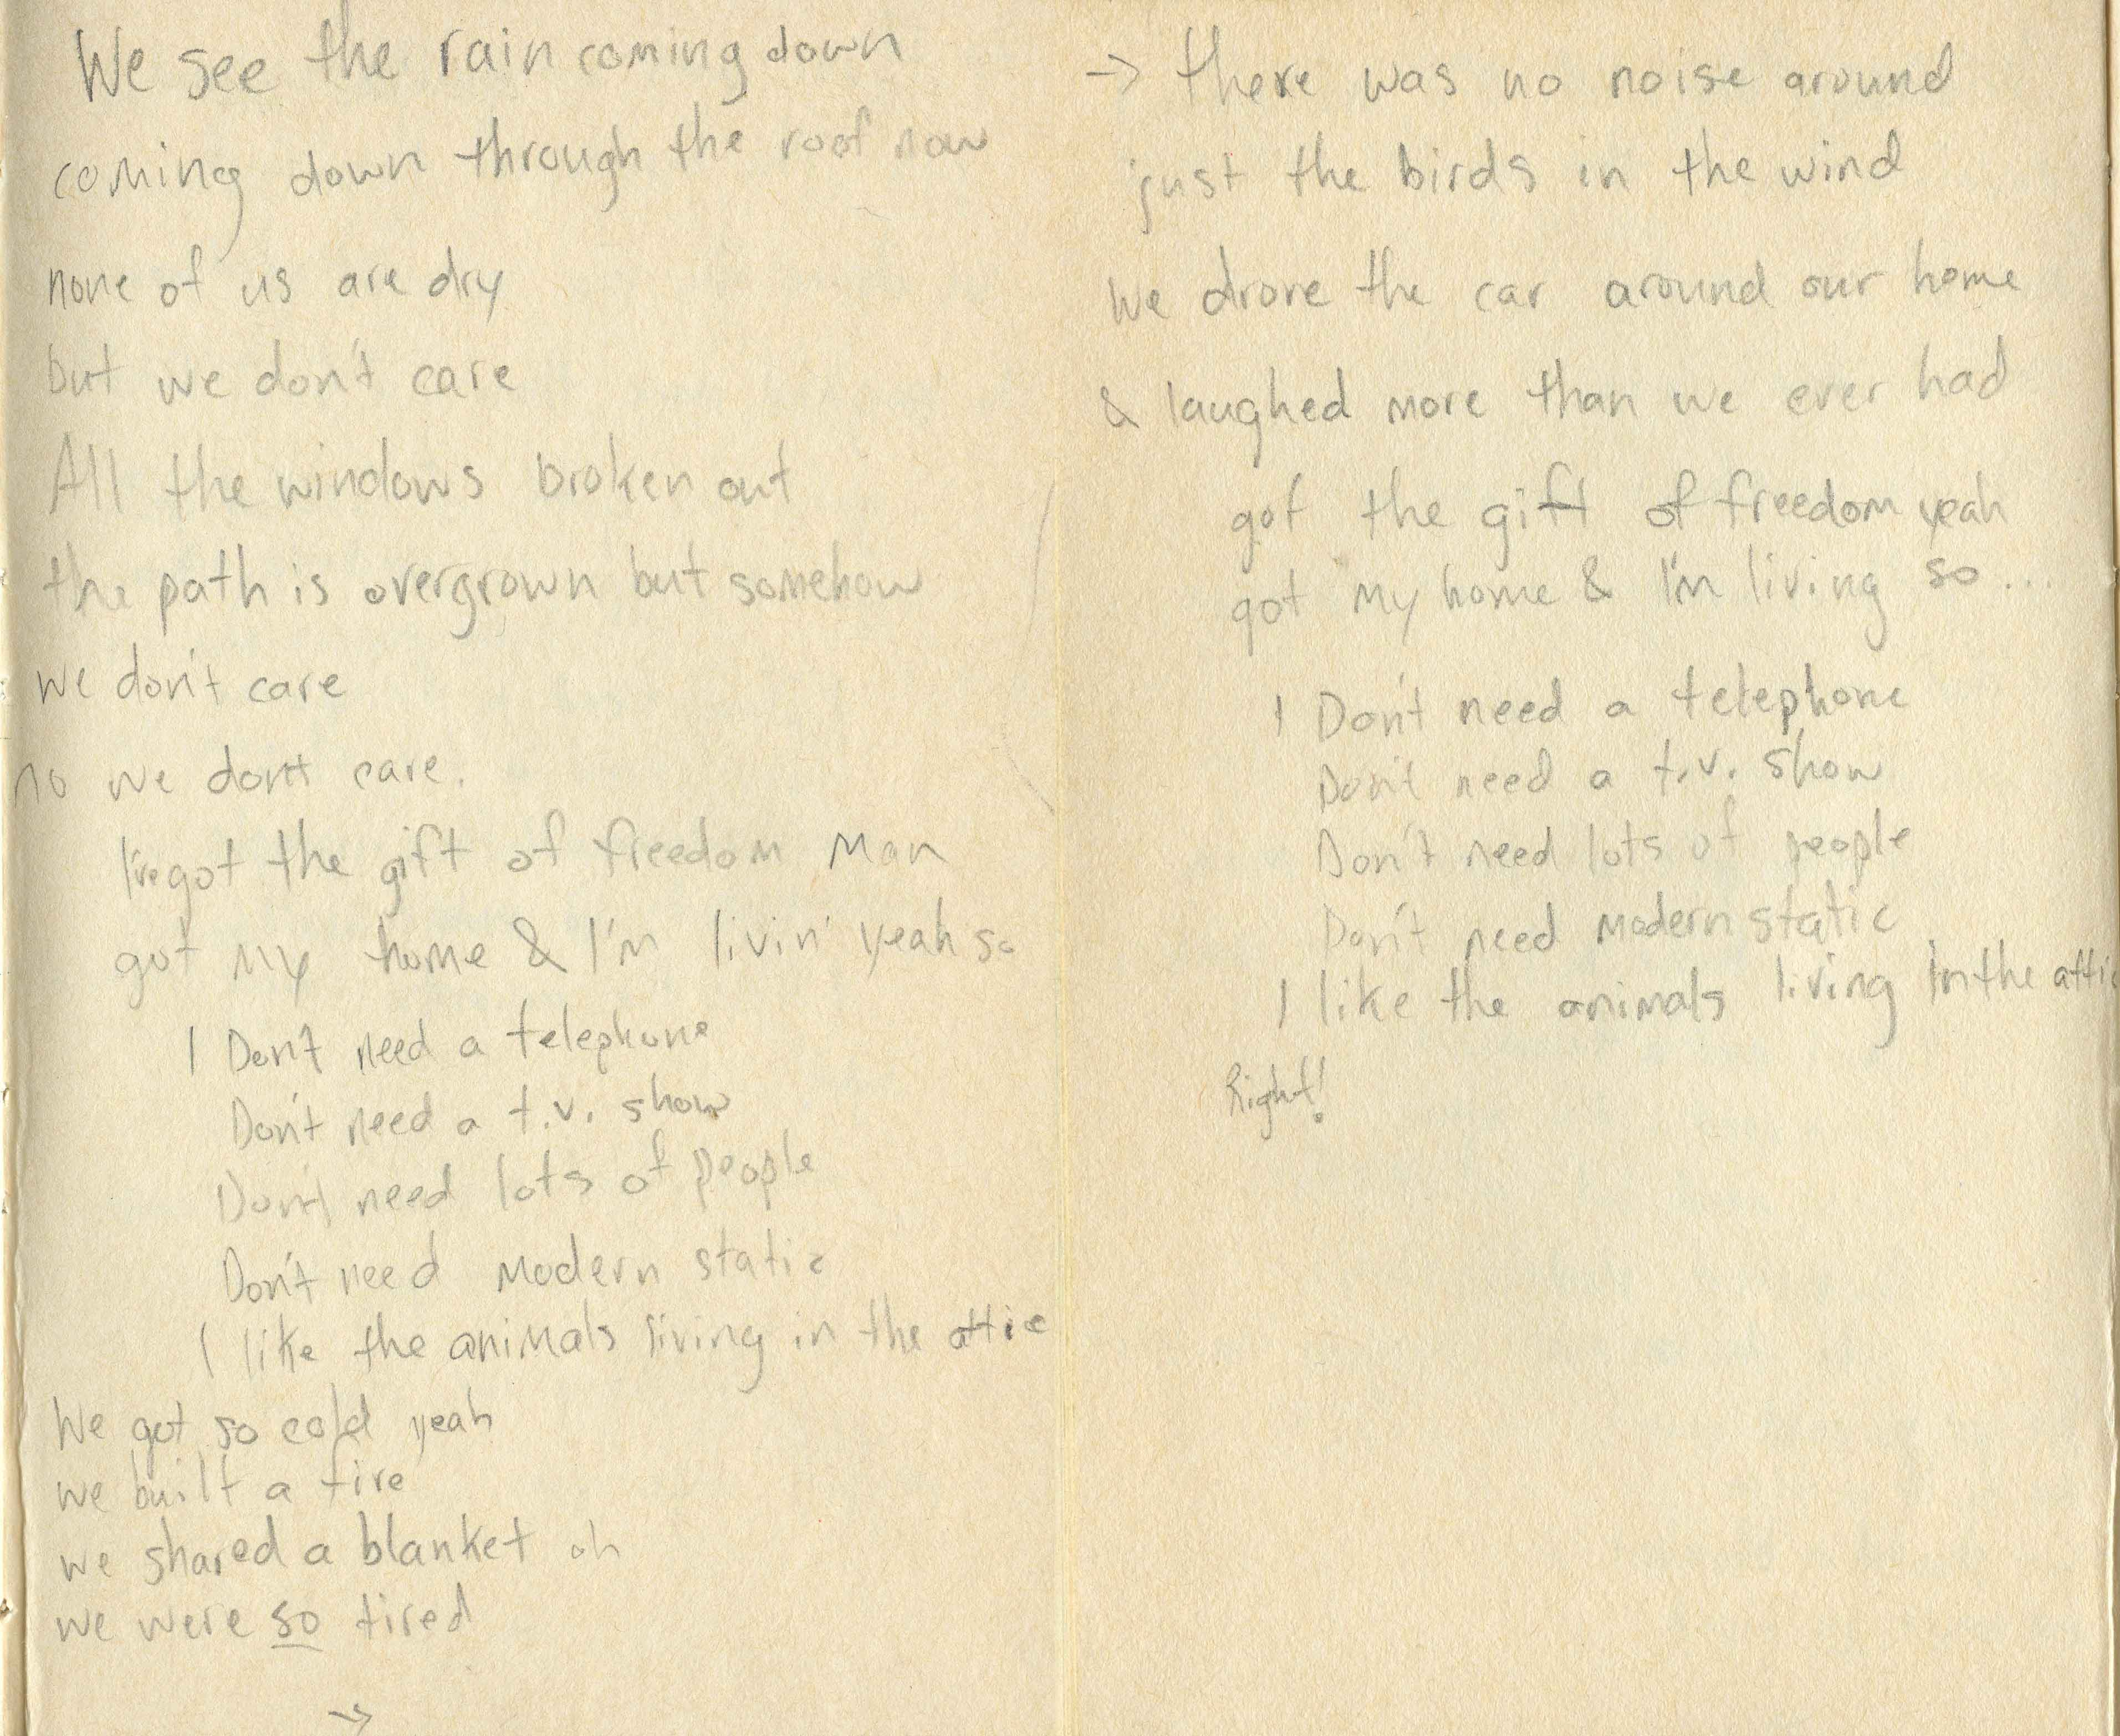 We see the rain coming down
coming down through the roof now
none of us are dry
but we don't care
All the windows broken out
the path is overgrown but somehow
we don't care
no we don't care.
I've got the gift of freedom man
got my home & I'm livin' yeah so
I Don't need a telephone
Don't need a t.v. show
Don't need lots of people
Don't need modern static
I like the animals living in the attic
We got so cold yeah
we built a fire
we shared a blanket oh
we were so tired
→
→ there was no noise around
just the birds in the wind
we drove the car around our home
& laughed more than we ever had
got the gift of freedom yeah
got my home & I'm living so...
I Don't need a telephone
Don't need a t.v. show
Don't need lots of people
Don't need modern static
I like the animals living in the attic
Right!